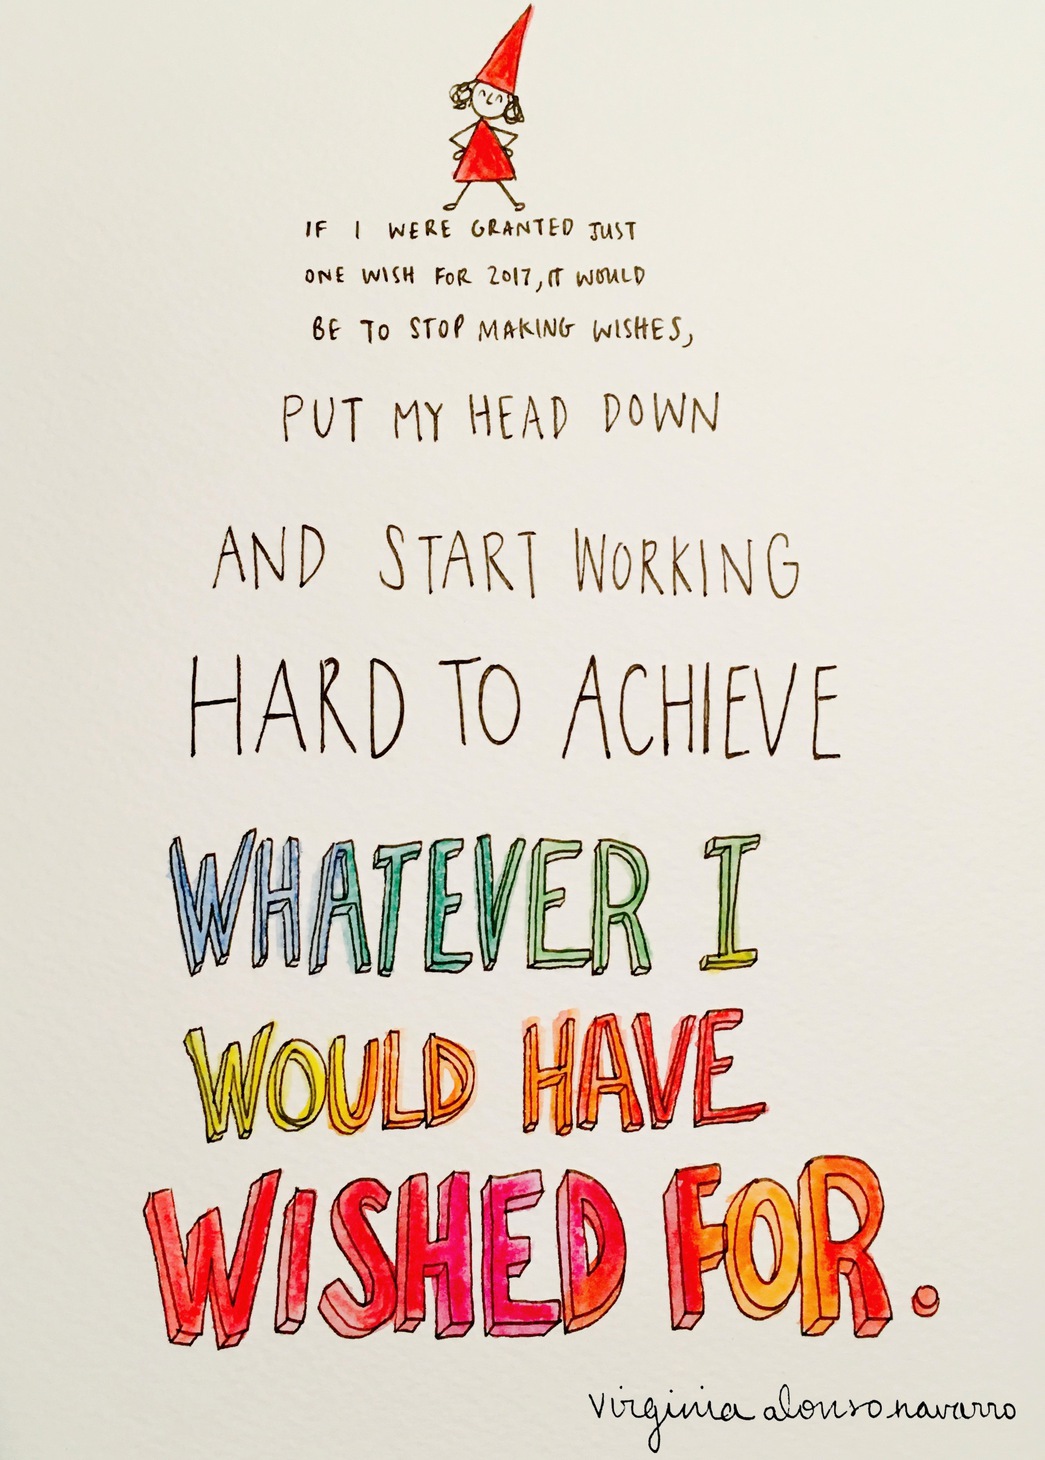 IF I WERE GRANTED JUST
ONE WISH FOR 2017, IT WOULD
BE TO STOP MAKING WISHES,
PUT MY HEAD DOWN
AND START WORKING
HARD TO ACHIEVE
WHATEVER I
WOULD HAVE
WISHED FOR.
virginia alonso navarro